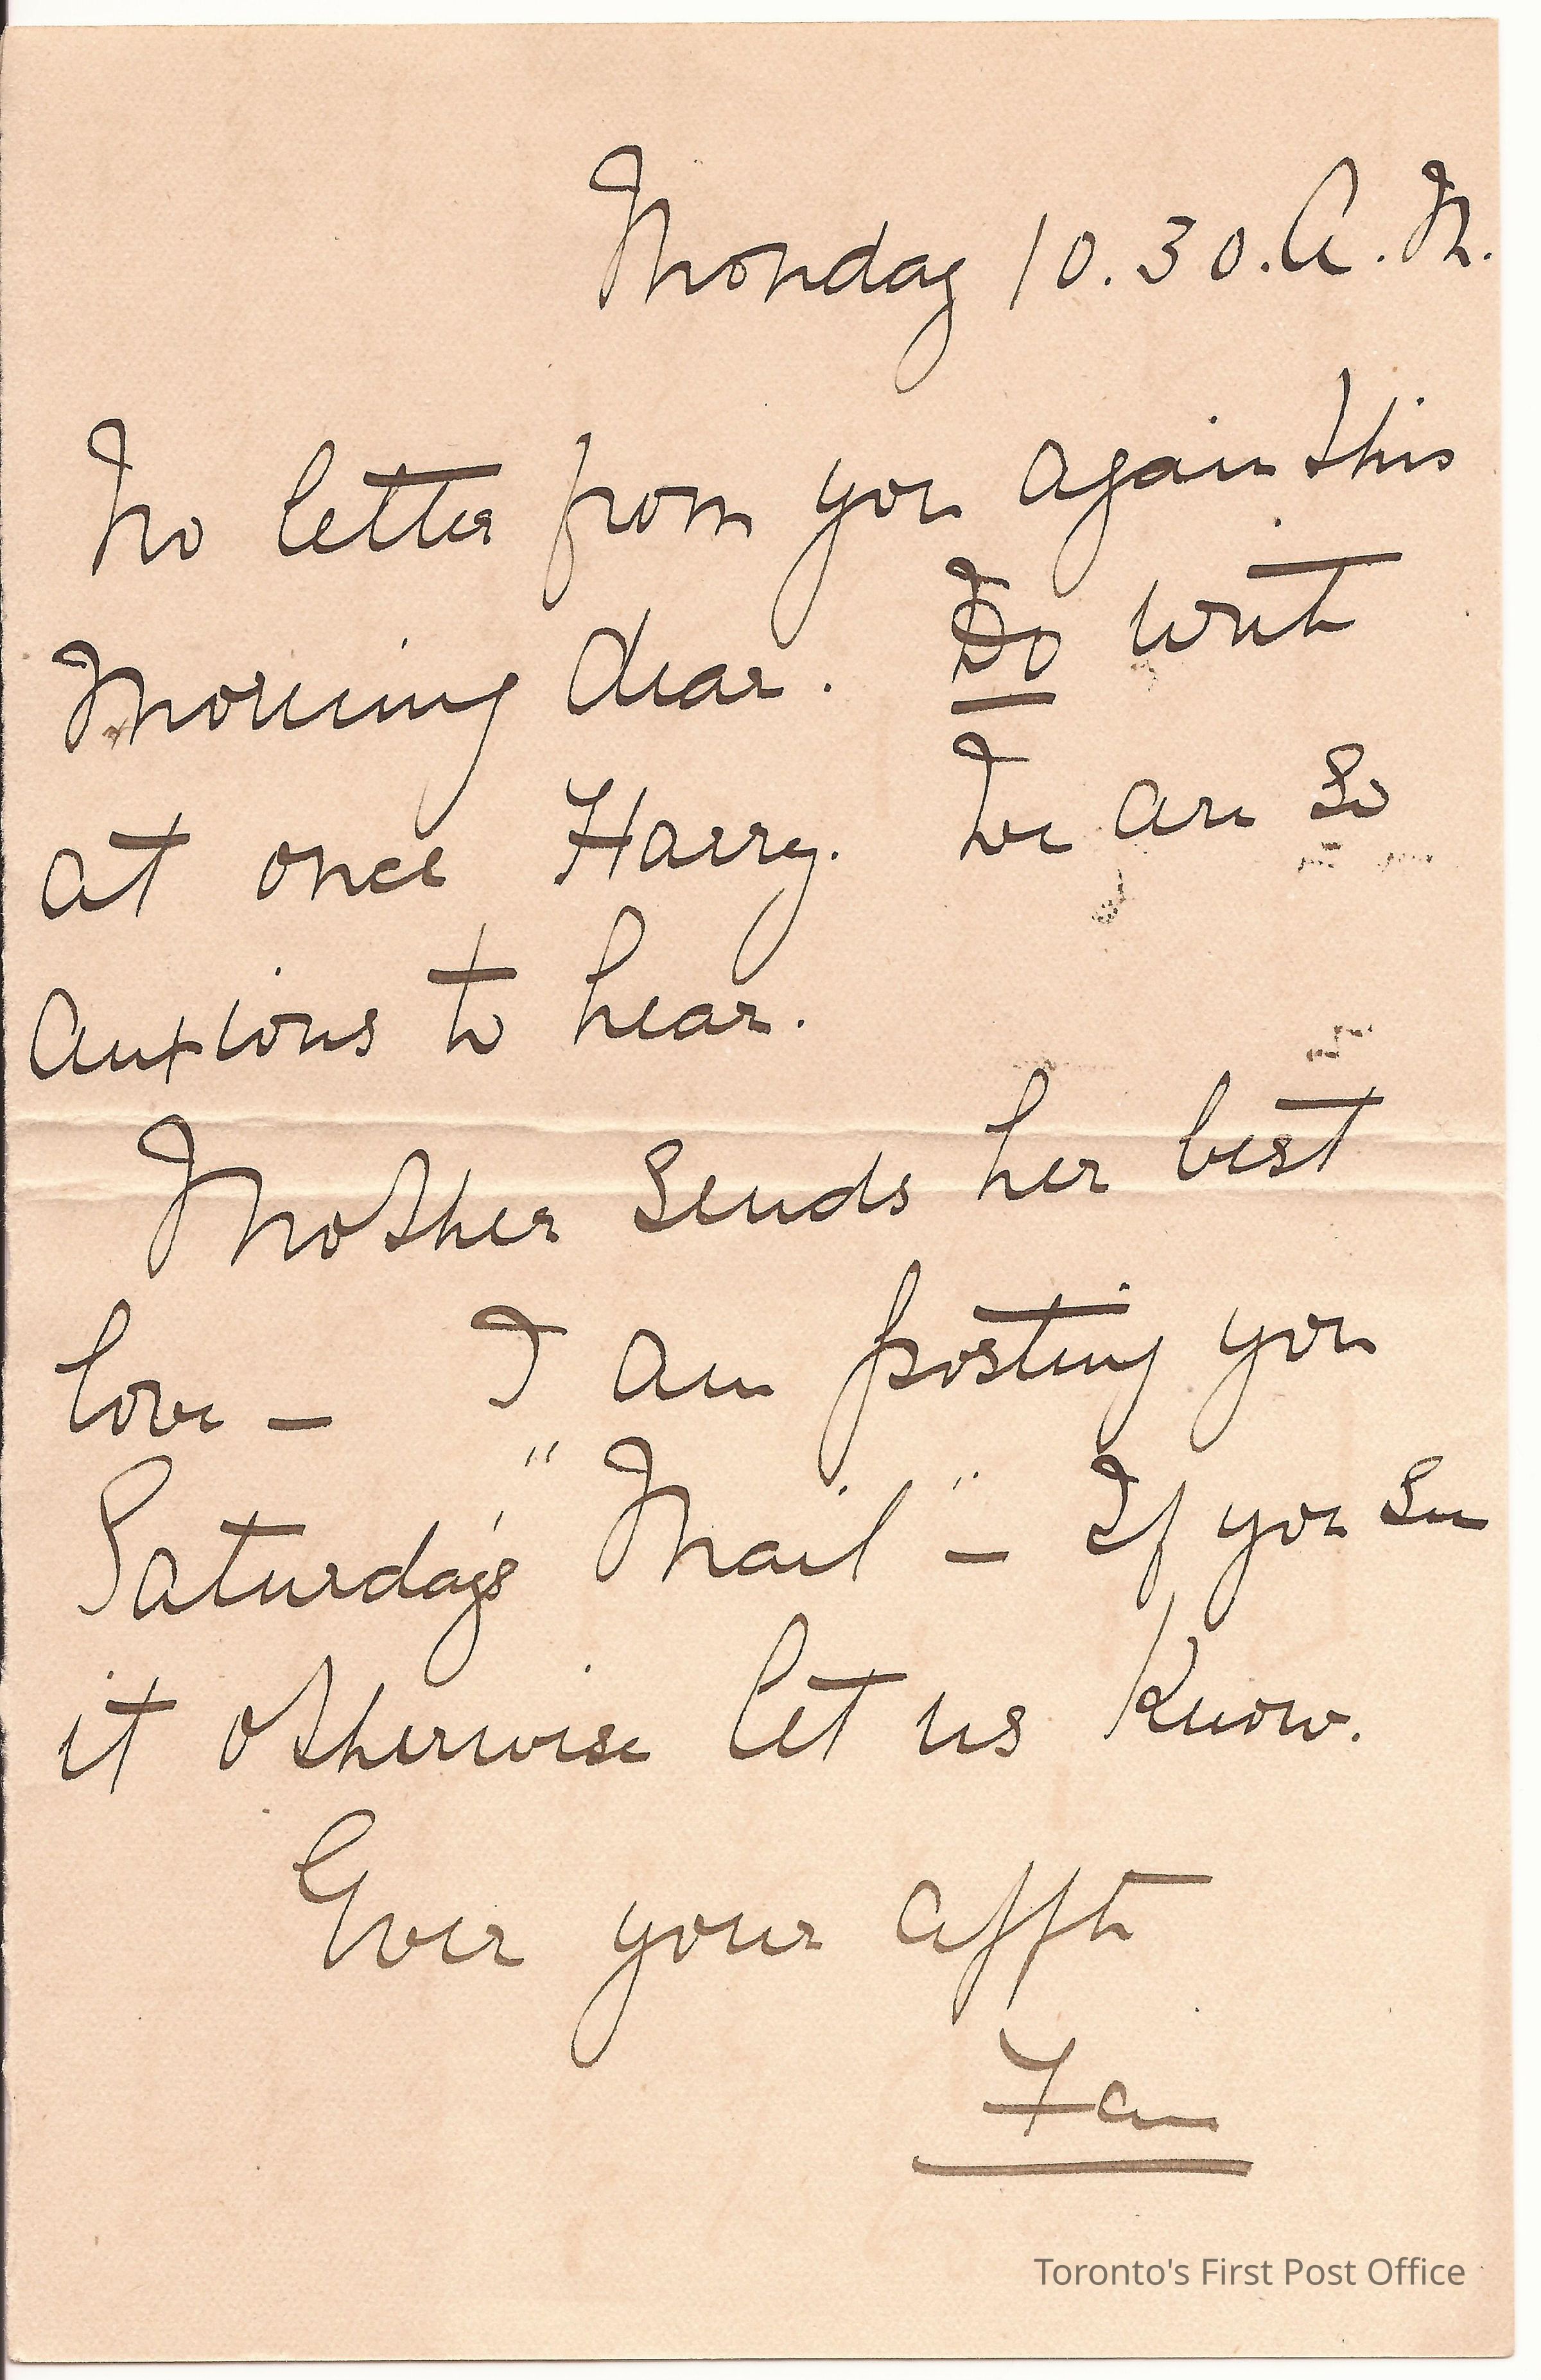 Monday 10.30. A.M.
No letter from you again this
Morning dear. Do write
at once Harry. We are so
anxious to hear.
Mother sends her best
love - I am posting you
Saturday's "Mail" - If you see
it otherwise let us know.
Ever your affte
Fan
Toronto's First Post Office